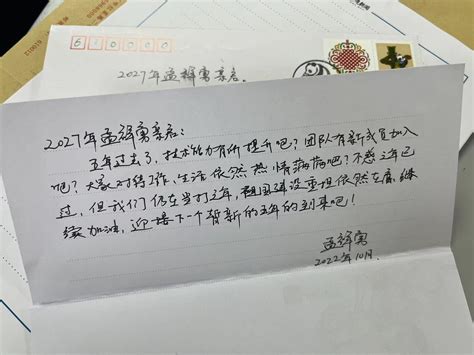 610000
2027年孟祥宵亲启。
2027年孟祥宵亲启:
五年过去了,技术能力有所提升吧?团队有新成员加入
吧?大家对待工作、生活依然热情满满吧?不惑之年已
过,但我们仍在当打之年,祖国建设重担依然在肩,继
续加油,迎接下一个暂新的五年的到来吧!
孟祥宵
2022年10月